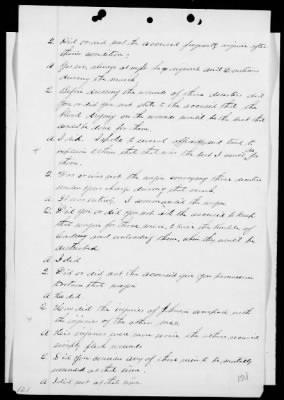 Q. Did or did not the accused frequently inquire after
their condition?
A Yes sir, always at night he inquired and sometimes
during the march.
Q. Before dressing the wounds of these
you or did you not state to the accused that the
blood drying on the wounds would be the best that
could be done for them.
A I did. I spoke to several officers and tried to
explain to them that that was the best I could do for
them.
Q. Was or was not the wagon conveying these
under your charge during that march
A It was entirely, I commanded the wagon
Q. Did you or did you not ask the accused to keep
that wagon for those men, to save the trouble of
loading and unloading them, when they would be
distributed.
A I did
Q. Did or did not the accused give you permission
to retain that wagon
A He did.
Q. How did the injuries of Johnson compare with
the injuries of the other men
A His injuries were more severe the others received
simply flesh wounds
Q. Did you consider any of those men to be mortally
wounded at that time.
A I did not at that time.
121